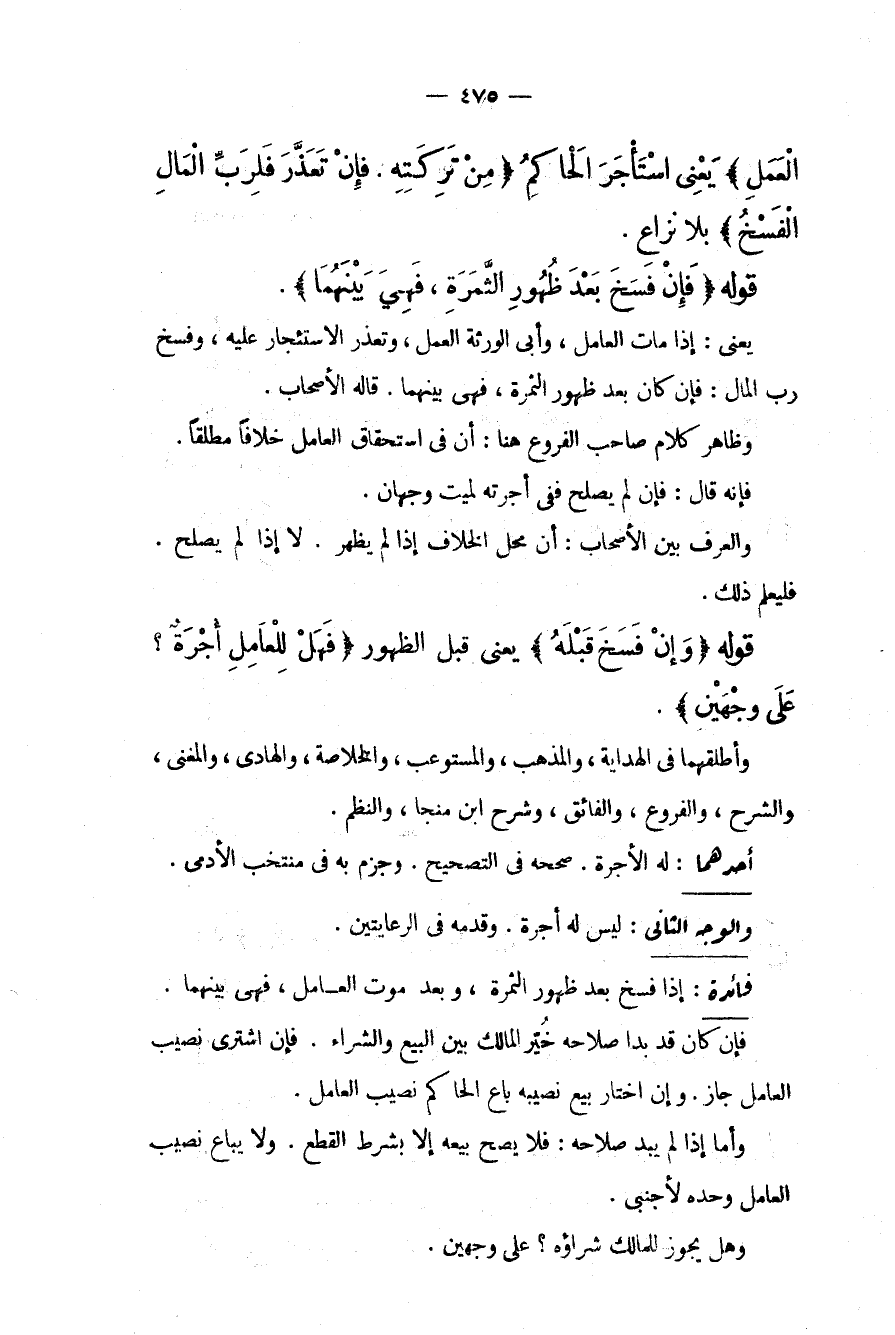 — ٤٧٥ —
الْعَمَلِ ﴾ يَعْنِى اسْتَأْجَرَ الْحَاكِمُ ﴿ مِنْ تَرِكَتِهِ . فَإِنْ تَعَذَّرَ فَلِرَبِّ الْمَالِ
الْفَسْخُ ﴾ بلا نزاع .
قوله ﴿ فَإِنْ فَسَخَ بَعْدَ ظُهُورِ الثَّمَرَةِ ، فَهِيَ بَيْنَهُمَا ﴾ .
يعنى : إذا مات العامل ، وأبى الورثة العمل ، وتعذر الاستئجار عليه ، وفسخ
رب المال : فإن كان بعد ظهور الثمرة ، فهى بينهما . قاله الأصحاب .
وظاهر كلام صاحب الفروع هنا : أن فى استحقاق العامل خلافاً مطلقاً .
فإنه قال : فإن لم يصلح ففى أجرته لميت وجهان .
والعرف بين الأصحاب : أن محل الخلاف إذا لم يظهر . لا إذا لم يصلح .
فليعلم ذلك .
قوله ﴿ وَإِنْ فَسَخَ قَبْلَهُ ﴾ يعنى قبل الظهور ﴿ فَهَلْ لِلْعَامِلِ أُجْرَةٌ ؟
عَلَى وجْهَيْنِ ﴾ .
وأطلقهما فى الهداية ، والمذهب ، والمستوعب ، والخلاصة ، والهادى ، والمغنى ،
والشرح ، والفروع ، والفائق ، وشرح ابن منجا ، والنظم .
أحدهما : له الأجرة . صححه فى التصحيح . وجزم به فى منتخب الأدمى .
والوجه الثانى : ليس له أجرة . وقدمه فى الرعايتين .
فائدة : إذا فسخ بعد ظهور الثمرة ، وبعد موت العـامل ، فهى بينهما .
فإن كان قد بدا صلاحه خُيِّر المالك بين البيع والشراء . فإن اشترى نصيب
العامل جاز . وإن اختار بيع نصيبه باع الحاكم نصيب العامل .
وأما إذا لم يبد صلاحه : فلا يصح بيعه إلا بشرط القطع . ولا يباع نصيب
العامل وحده لأجنبى .
وهل يجوز للمالك شراؤه ؟ على وجهين .